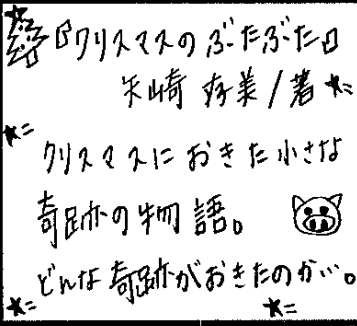 『クリスマスのぶたぶた』
矢崎 存美/著
クリスマスにおきた小さな
奇跡の物語。
どんな奇跡がおきたのか…。